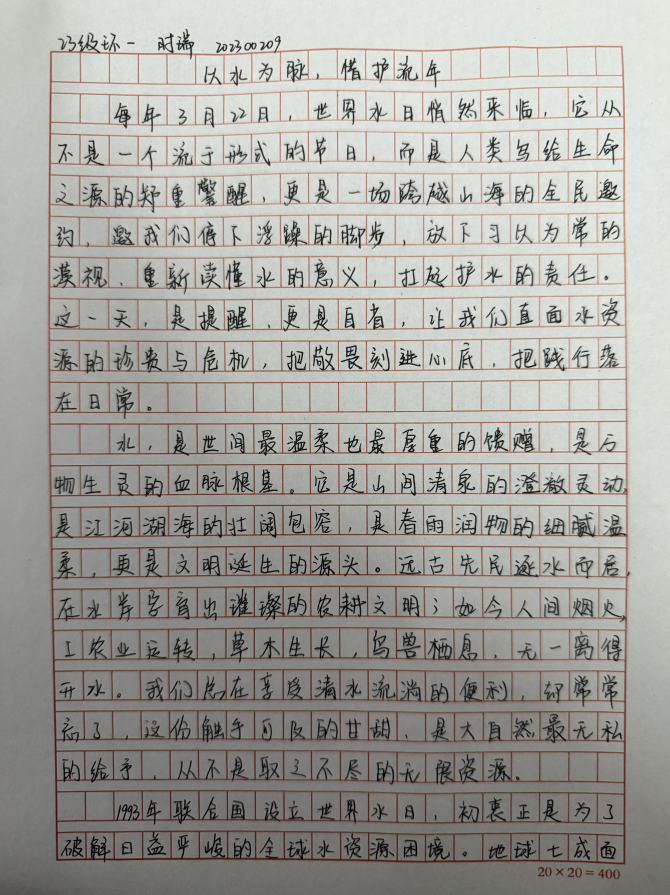 23级环一 时瑞 202300209
以水为脉，惜护流年
每年3月22日，世界水日悄然来临，它从
不是一个流于形式的节日，而是人类写给生命
之源的郑重警醒，更是一场跨越山海的全民邀
约，邀我们停下浮躁的脚步，放下习以为常的
漠视，重新读懂水的意义，扛起护水的责任。
这一天，是提醒，更是自省，让我们直面水资
源的珍贵与危机，把敬畏刻进心底，把践行落
在日常。
水，是世间最温柔也最厚重的馈赠，是万
物生灵的血脉根基。它是山间清泉的澄澈灵动，
是江河湖海的壮阔包容，是春雨润物的细腻温
柔，更是文明诞生的源头。远古先民逐水而居，
在水岸孕育出璀璨的农耕文明；如今人间烟火，
工农业运转，草木生长，鸟兽栖息，无一离得
开水。我们总在享受清水流淌的便利，却常常
忘了，这份触手可及的甘甜，是大自然最无私
的给予，从不是取之不尽的无限资源。
1993年联合国设立世界水日，初衷正是为了
破解日益严峻的全球水资源困境。地球七成面
20×20=400